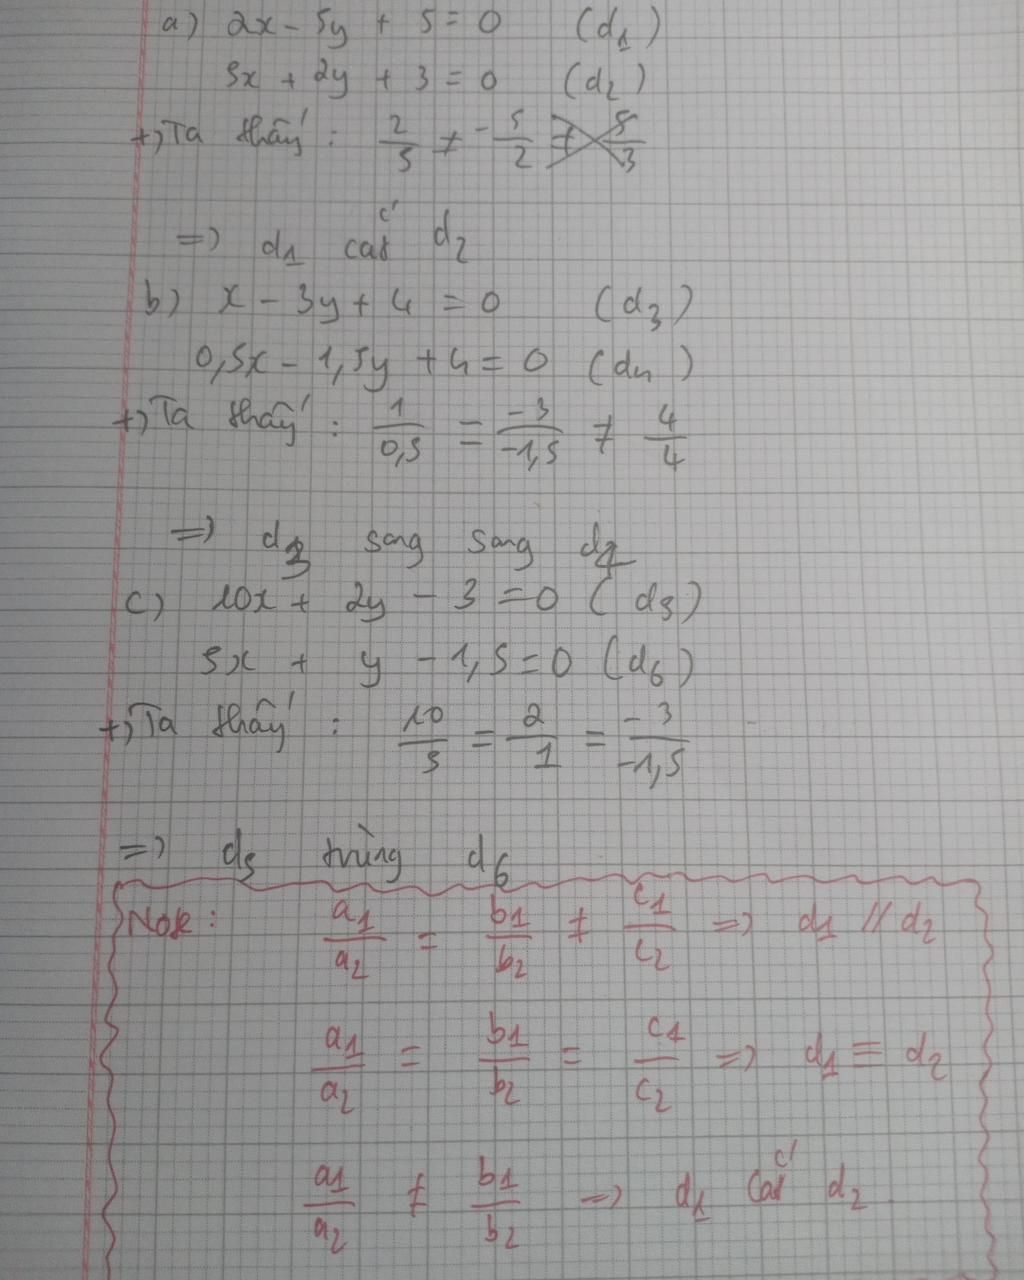 a) 2x - 5y + 5 = 0 (d1)
5x + 2y + 3 = 0 (d2)
+) Ta thấy : 2/5 ≠ -5/2 ≠ 5/3
=> d1 cắt d2
b) x - 3y + 4 = 0 (d3)
0,5x - 1,5y + 4 = 0 (d4)
+) Ta thấy : 1/0,5 = -3/-1,5 ≠ 4/4
=> d3 song song d4
c) 10x + 2y - 3 = 0 (d5)
5x + y - 1,5 = 0 (d6)
+) Ta thấy : 10/5 = 2/1 = -3/-1,5
=> d5 trùng d6
Note : a1/a2 = b1/b2 ≠ c1/c2 => d1 // d2
a1/a2 = b1/b2 = c1/c2 => d1 ≡ d2
a1/a2 ≠ b1/b2 => d1 cắt d2